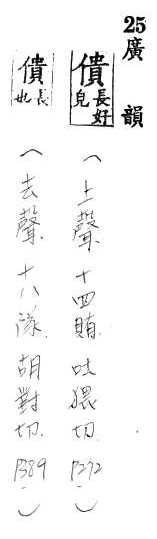 25廣韻
僓長好皃(上聲.十四賄.吐猥切.P272.)
僓長也(去聲.十八隊.胡對切.P389.)